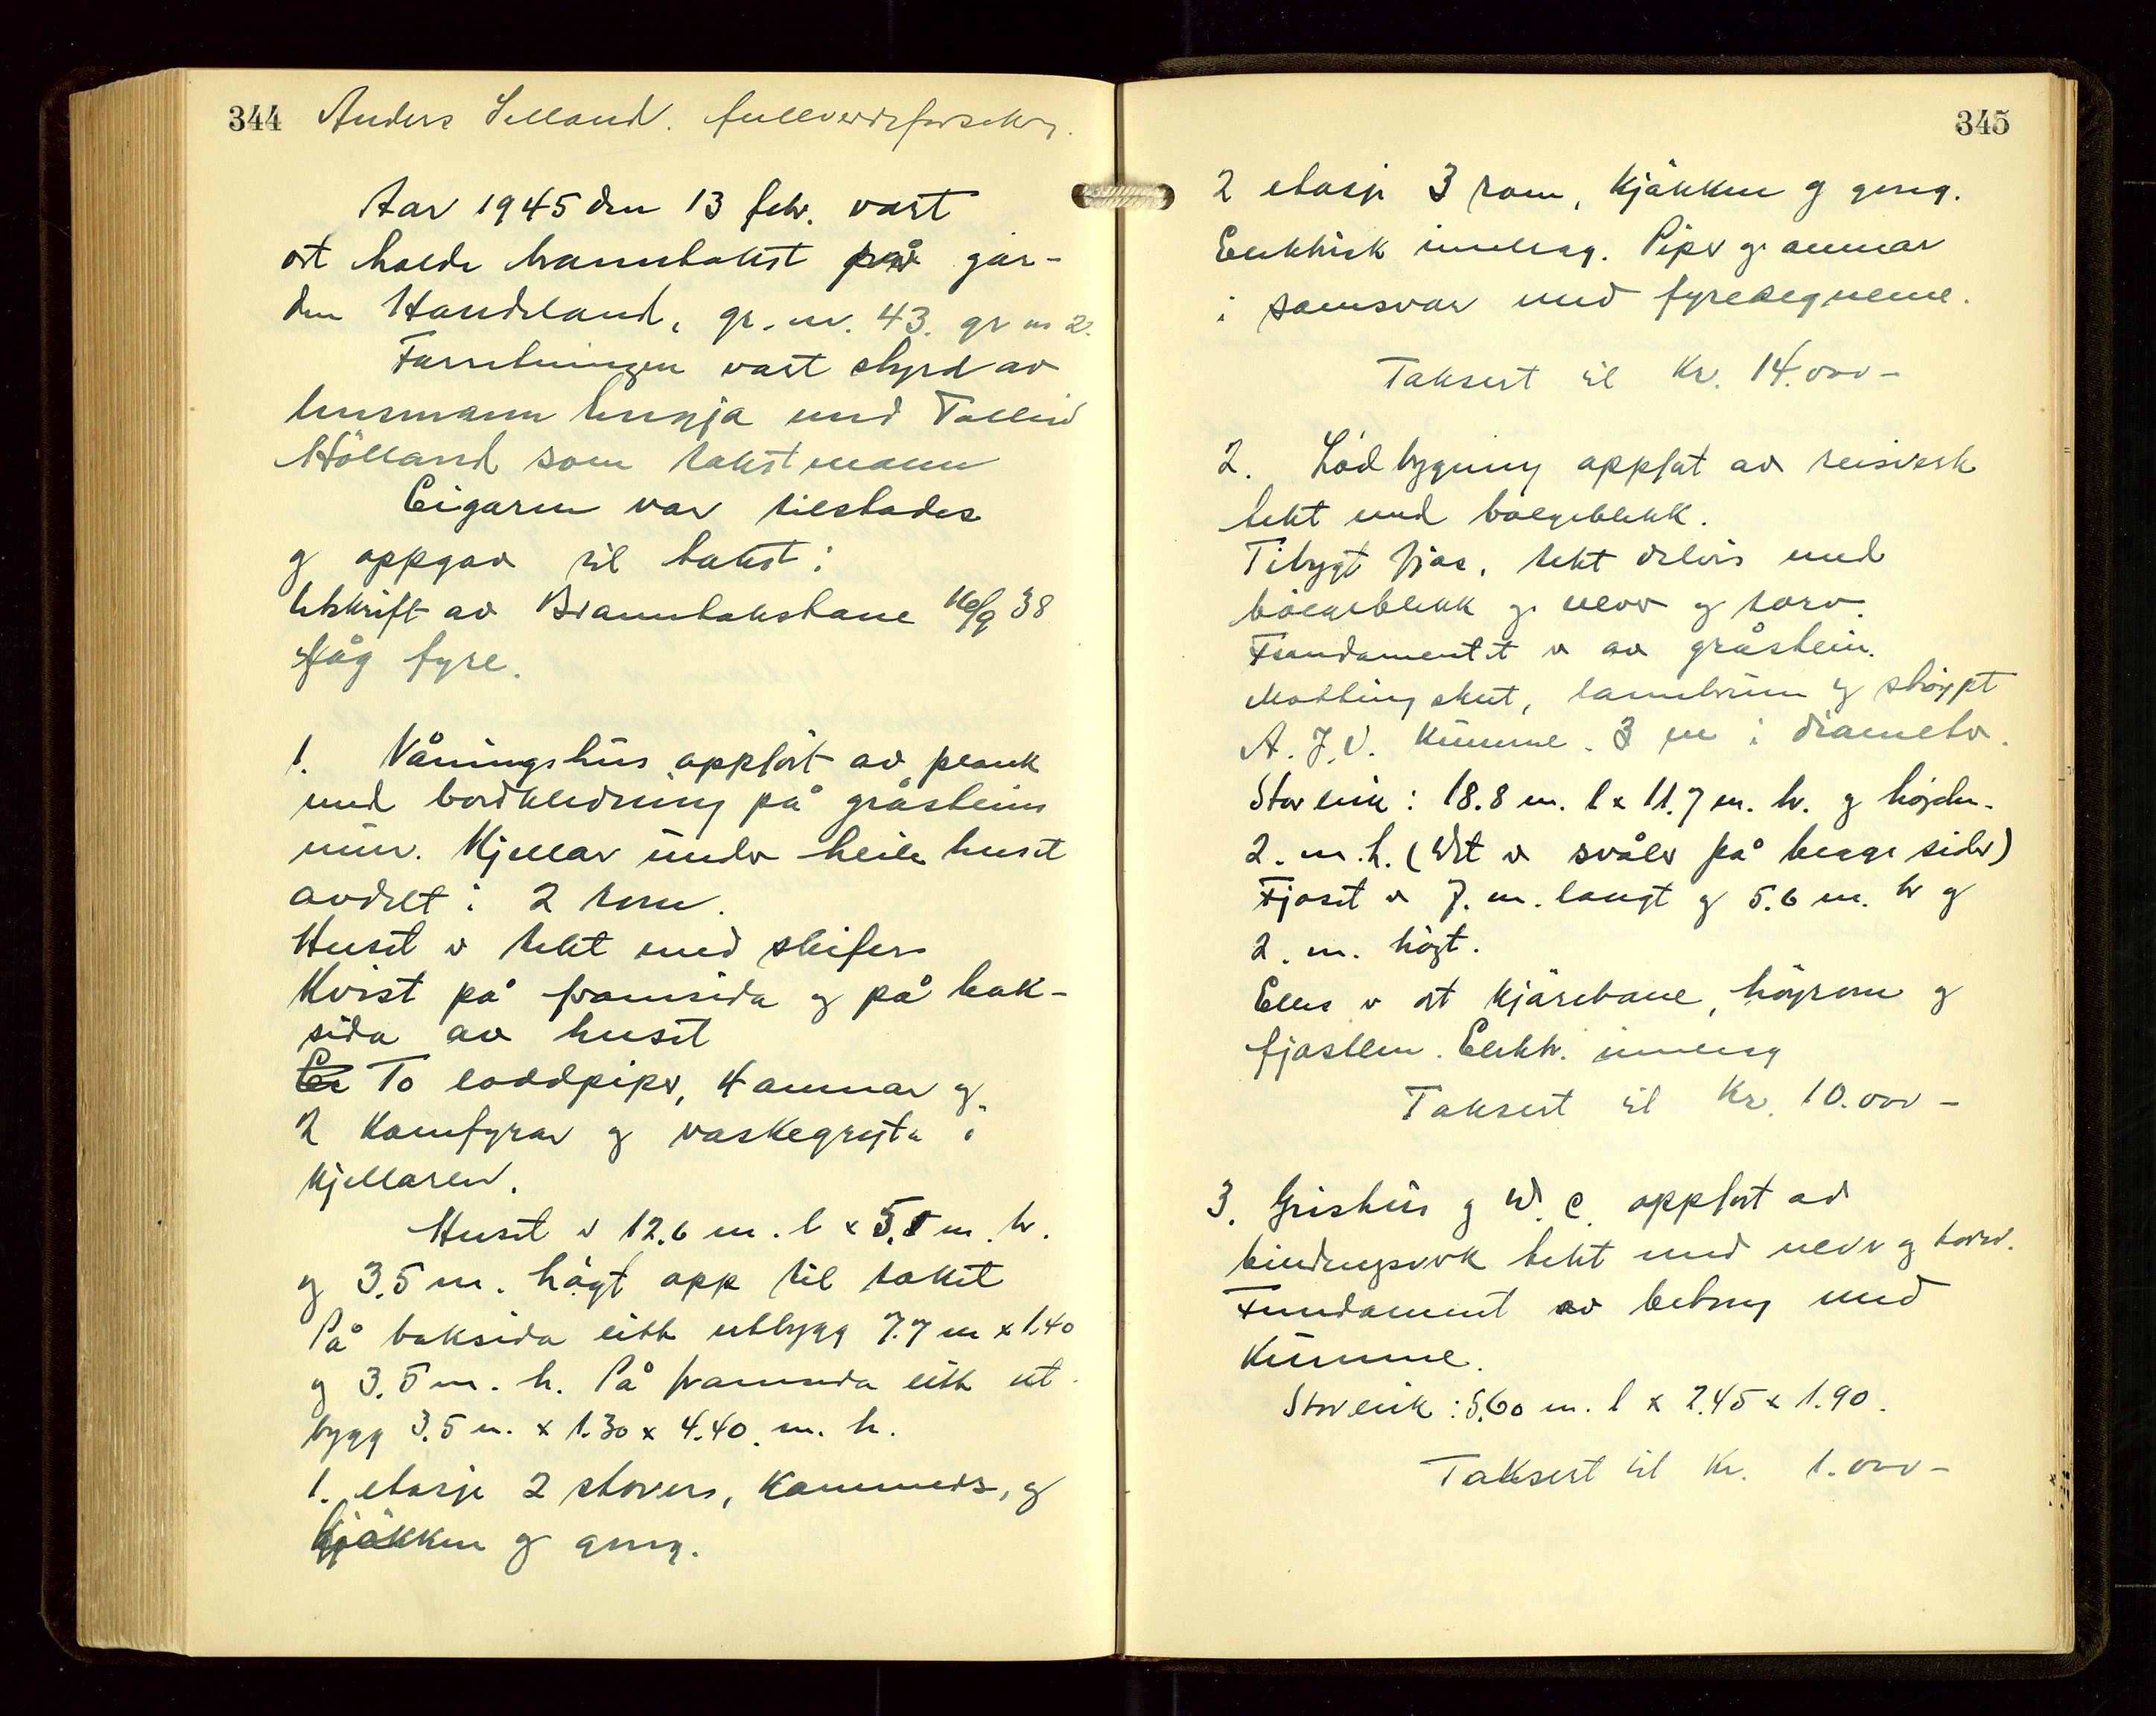 344 Anders Selland. fullverdeforsekr.
Aar 1945 den 13 febr. vart
det halde branntakst på går-
den Handeland, gr. nr. 43. gr nr 2.
Forretningen vart styrd av
lensmann med Tolleiv
Hölland som takstmann
Eigaren var tilstades
og oppgav til takst:
Utskrift av Branntakstane 16/9 38
låg fyre.
1. Våningshus oppfört av plank
med bordkledning på gråsteins
mur. Kjellar under heile huset
avdelt i 2 rom.
Huset er tekt med skifer
Kvist på framsida og på bak-
sida av huset
Er To loddpiper, 4 omnar og
2 Komfyrar og vaskegryta i
Kjellaren.
Huset er 12.6 m. l x 5.8 m. br.
og 3.5 m. högt opp til taket
På baksida eitt utbygg 7.7 m x 1.40
og 3.5 m. h. På framsida eitt ut-
bygg 3.5 m. x 1.30 x 4.40. m. h.
1. etasje 2 stover, Kammers, og
Kjökken og gong.
345
2 etasje 3 rom, Kjökken og gong.
Elektrisk innlegg. Piper og omnar
i samsvar med fyreseguene.
Taksert til Kr. 14.000-
2. Lödbygning oppfört av reisverk
tekt med bölgeblekk.
Tilbygt fjos, tekt delvis med
bölgeblekk og never og torv.
Fundamentet er av gråstein.
skut, landbrum og stöypt
A.J.V. Kumme. 3 m i diameter.
Storleik: 18.8 m. l x 11.7 m. br. og höjden
2. m. h. (Det er svåler på begge sider)
Fjoset er 7. m. langt og 5.6 m. br og
2. m. högt.
Elles er det Kjörebane, höyrom og
fjostlem. Elektr. innlegg
Taksert til Kr. 10.000-
3. Grishus og W.C. oppfört av
bindingsverk tekt med never og torv.
Fundament av betong med
Kumme.
Storleik: 5.60 m. l x 2.45 x 1.90.
Taksert til Kr. 1.000-